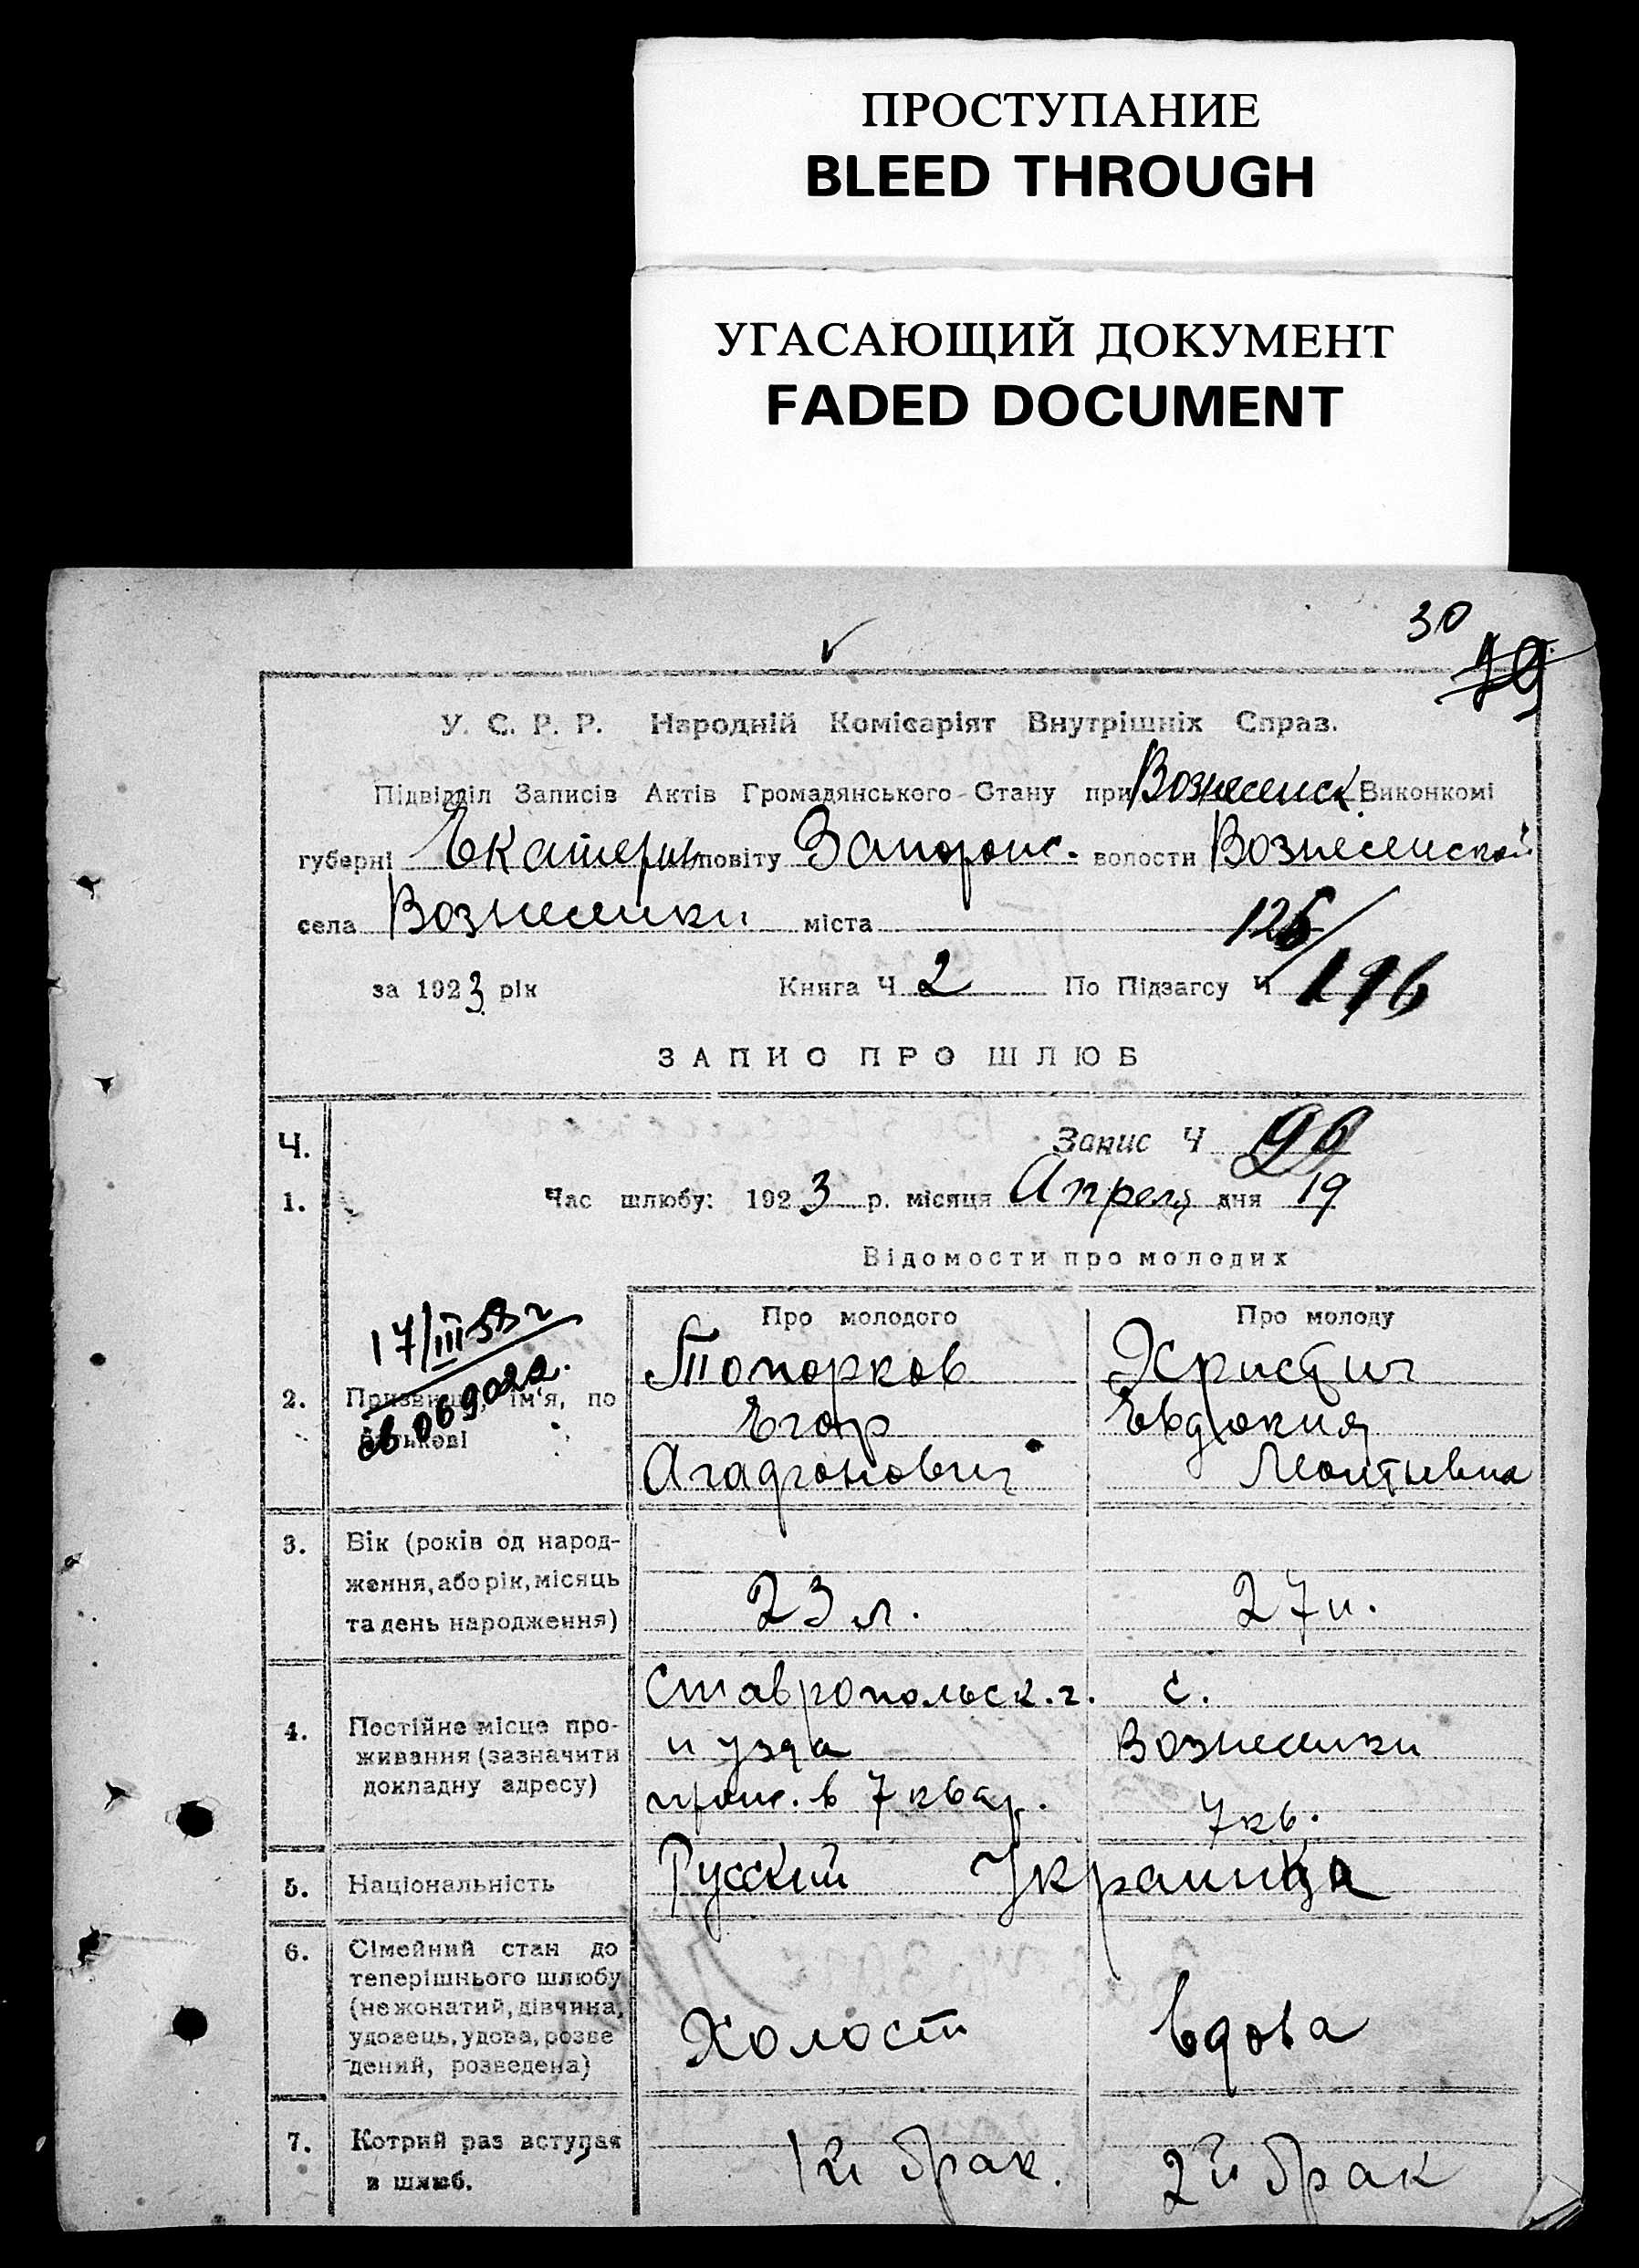 ПРОСТУПАНИЕ
BLEED THROUGH
УГАСАЮЩИЙ ДОКУМЕНТ
FADED DOCUMENT
30
19
У. С. Р. Р. Народній Комісаріят Внутрішніх Справ.
Підвідділ Записів Актів Громадянського Стану при Вознесенск. Виконкомі
губерні Екатерин повіту Запорож. волости Вознесенской
села Вознесенки міста
126/
за 1923 рік Книга Ч 2 По Підзагсу Ч 196
ЗАПИС ПРО ШЛЮБ
Ч. Запис Ч 96
1. Час шлюбу: 1923 р. місяця Апреля дня 19
Відомости про молодих
Про молодого Про молоду
17/III 53 г
2. Призвище, ім'я, по батькові
Топорков
Егор
Агафонович
Христич
Евдокия
Леонтьевна
3. Вік (років од народ-
ження, або рік, місяць
та день народження)
23 л. 27 л.
4. Постійне місце про-
живання (зазначити
докладну адресу)
Ставропольск. г.
и уезда
прож. в 7 квар.
с.
Вознесенки
7 кв.
5. Національність Русский Украинка
6. Сімейний стан до
теперішнього шлюбу
(нежонатий, дівчина,
удовець, удова, розве
дений, розведена)
Холост вдова
7. Котрий раз вступає
в шлюб.
1й брак. 2й брак